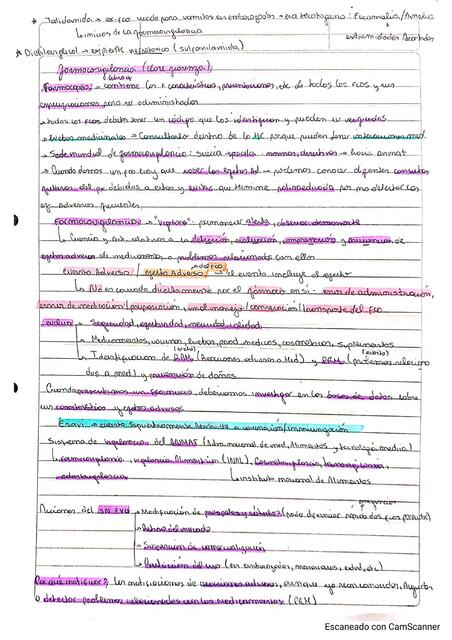 * Talidomida → ex-fco usado para vomitos en embarazadas → era teratogena: Focomelia/Amelia
Inicios de la farmacovigilancia
extremidades Acortadas
* Dietilenglicol → expiente nefrotoxico (sulfanilamida)
farmacovigilancia (clase grabada)
(libro)
Farmacopea → contiene las características, presentaciones, etc de todos los fcos y sus
especificaciones para ser administrados
→ todos los fcos deben tener un código que los identifiquen y pueden ser seguidos
→ hierbas medicinales → Consultarlo dentro de la HC porque pueden tener interacciones med.
→ Sede mundial de farmacovigilancia: suecia → normas, directivas → hacia anmat
→ Cuando damos un fco hay que saber los efectos Ad → podemos conocer
del px debidas a estas y evitar que termine polimedicado por no detectar los
ef. adversos frecuentes.
Farmacovigilancia → "vigilare": permanecer alerta, observar
↳ Ciencia y Art. relativa a la detección, evaluación, comprensión y prevención de
efectos adversos de medicamentos o problemas relacionados con ellos
del fco
evento Adverso / efecto Adverso → el evento incluye al efecto
↳ No es causado directamente por el fármaco en si: error de administración,
errores de medicación/preparación, mal manejo/conservación/transporte del fco
evalua → Seguridad, efectividad, calidad.
→ Medicamentos, vacunas, hierbas, prod. medicos, cosmeticos, suplementos
(efecto) (evento)
→ Identificacion de RAM (Reacciones adversas a Med) y PRM (problemas relaciona
dos a prod.) y prevención de daños.
Cuando prescribimos un fco nuevo, deberiamos investigar en las bases de datos sobre
sus caracteristicas y efectos adversos
Esavi → evento supuestamente Atribuible a vacunación/inmunización
Sistema de vigilancia del ANMAT (Adm. nacional de med, Alimentos y tecnología medica)
↳ Farmacovigilancia, vigilancia Alimentaria (INAL), Cosmetovigilancia,
↳ instituto nacional de Alimentos
Acciones del SN FVG → Modificación de prospetos y rótulos
→ Retiro del mercado
→ Suspensión de comercialización
→ Restricción del uso (en embarazadas, edad, etc)
Por qué notificar? Las notificaciones de reacciones adversas, aunque ya sean conocidas, Ayuda
a detectar problemas relacionados con los Medicamentos (PRM)
Escaneado con CamScanner